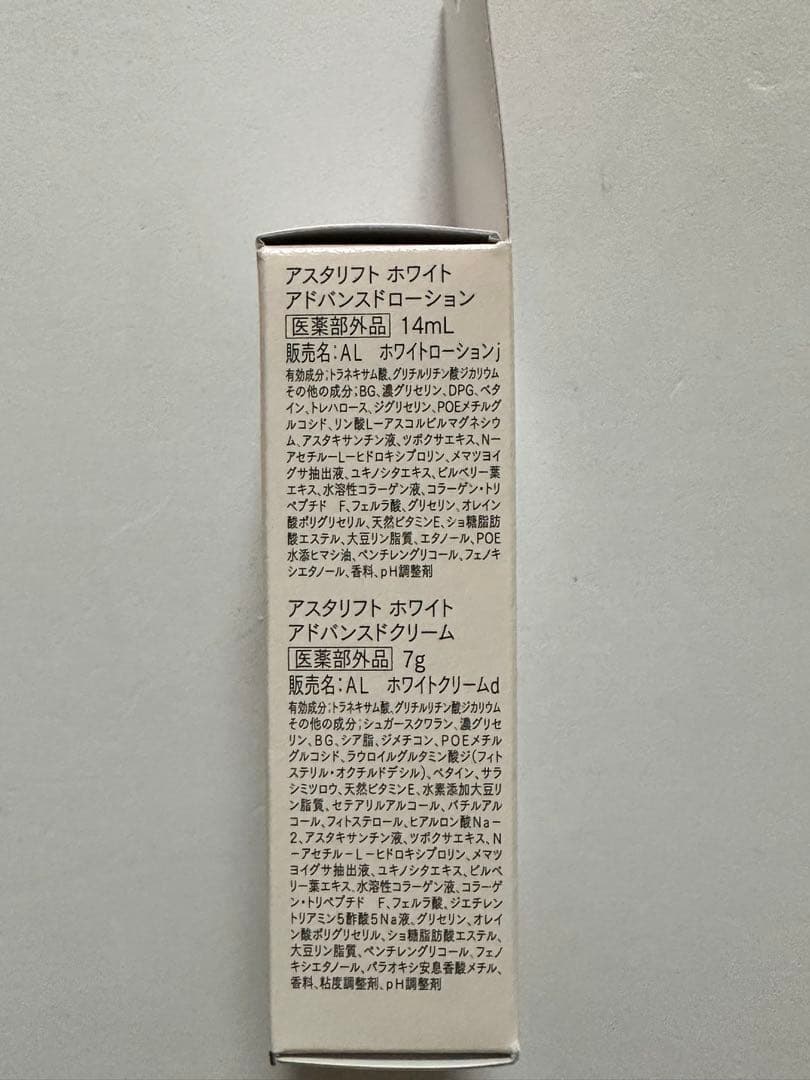 アスタリフト ホワイト
アドバンスドローション
医薬部外品 14mL
販売名:AL ホワイトローションj
有効成分;トラネキサム酸、グリチルリチン酸ジカリウム
その他の成分;BG、濃グリセリン、DPG、ベタ
イン、トレハロース、ジグリセリン、POEメチルグ
ルコシド、リン酸L-アスコルビルマグネシウ
ム、アスタキサンチン液、ツボクサエキス、N-
アセチル-L-ヒドロキシプロリン、メマツヨイ
グサ抽出液、ユキノシタエキス、ビルベリー葉
エキス、水溶性コラーゲン液、コラーゲン・トリ
ペプチド F、フェルラ酸、グリセリン、オレイン
酸ポリグリセリル、天然ビタミンE、ショ糖脂肪
酸エステル、大豆リン脂質、エタノール、POE
水添ヒマシ油、ペンチレングリコール、フェノキ
シエタノール、香料、pH調整剤
アスタリフト ホワイト
アドバンスドクリーム
医薬部外品 7g
販売名:AL ホワイトクリームd
有効成分;トラネキサム酸、グリチルリチン酸ジカリウム
その他の成分;シュガースクワラン、濃グリセ
リン、BG、シア脂、ジメチコン、POEメチル
グルコシド、ラウロイルグルタミン酸ジ(フィト
ステリル・オクチルドデシル)、ベタイン、サラ
シミツロウ、天然ビタミンE、水素添加大豆リ
ン脂質、セテアリルアルコール、バチルアル
コール、フィトステロール、ヒアルロン酸Na-
2、アスタキサンチン液、ツボクサエキス、N
-アセチル-L-ヒドロキシプロリン、メマツ
ヨイグサ抽出液、ユキノシタエキス、ビルベ
リー葉エキス、水溶性コラーゲン液、コラーゲ
ン・トリペプチド F、フェルラ酸、ジエチレン
トリアミン5酢酸5Na液、グリセリン、オレイ
ン酸ポリグリセリル、ショ糖脂肪酸エステル、
大豆リン脂質、ペンチレングリコール、フェノ
キシエタノール、パラオキシ安息香酸メチル、
香料、粘度調整剤、pH調整剤